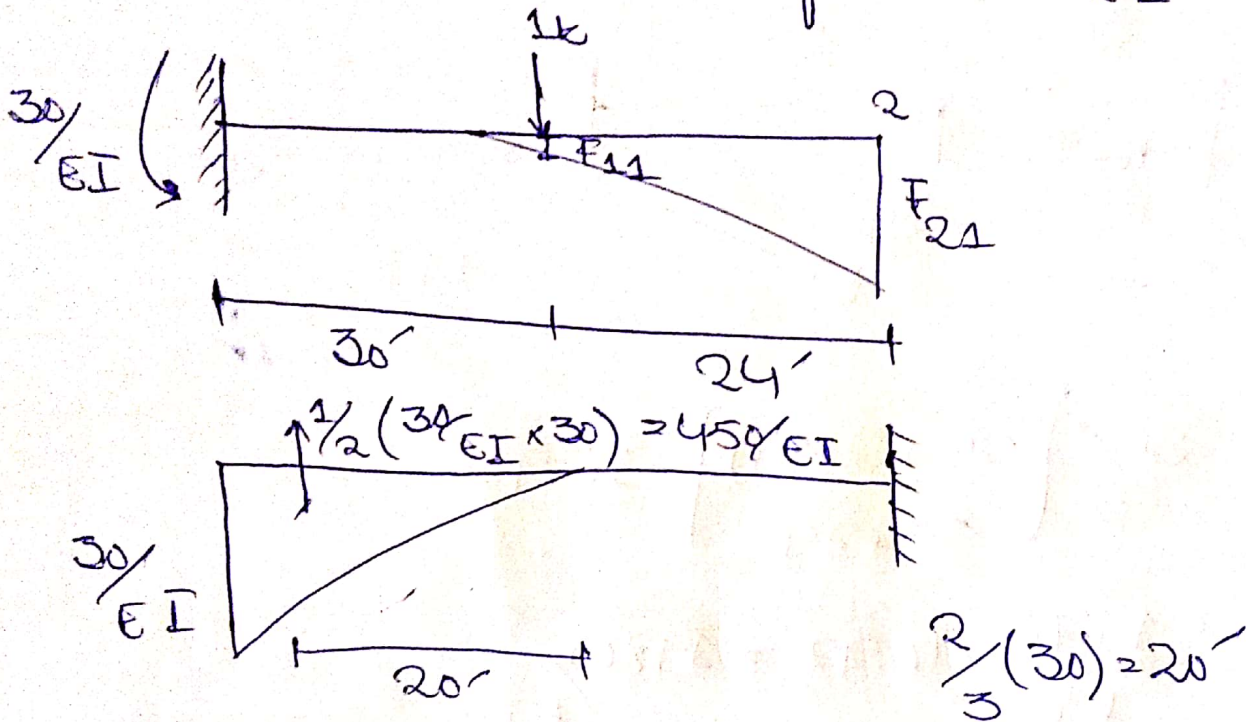 1k
30/EI
2
F11
F21
30´
24´
1/2 (30/EI × 30) = 450/EI
30/EI
20´
2/3 (30) = 20´